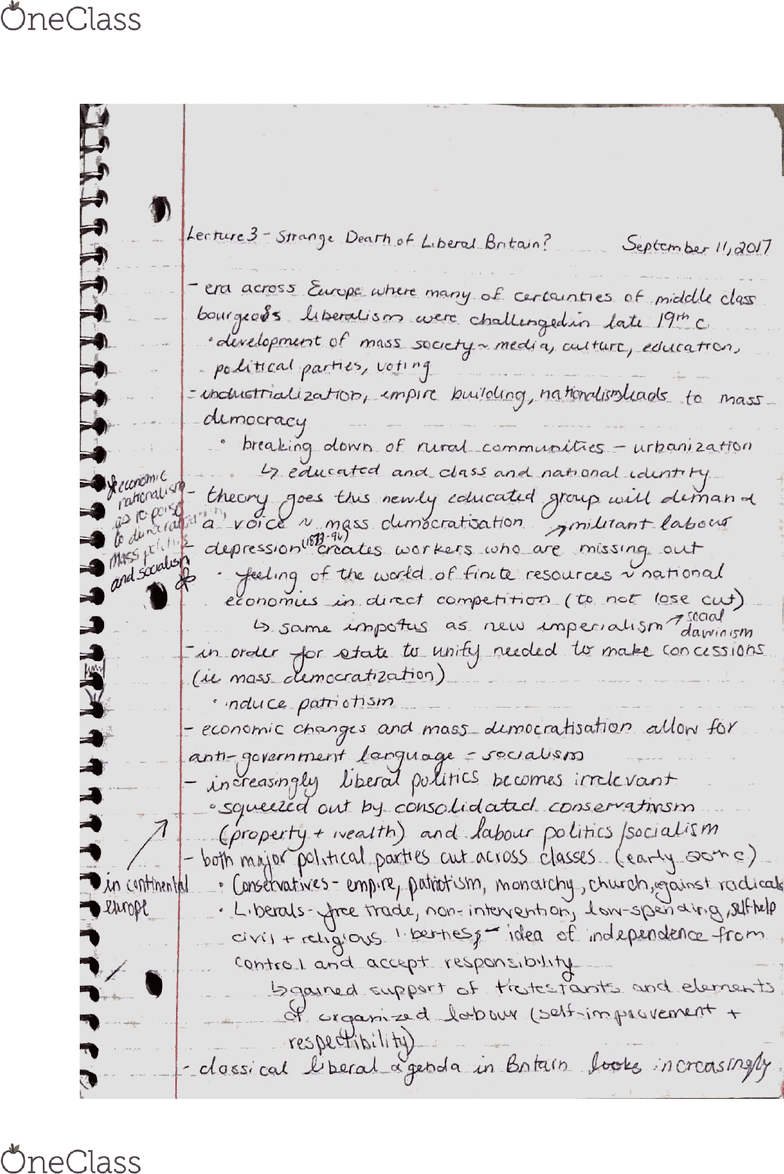 OneClass
Lecture 3 - Strange Death of Liberal Britain? September 11, 2017
- era across Europe where many of certainties of middle class
bourgeois liberalism were challenged in late 19th c
• development of mass society ~ media, culture, education,
political parties, voting
- industrialization, empire building, nationalism leads to mass
democracy
• breaking down of rural communities - urbanization
↳ educated and class and national identity
- theory goes this newly educated group will demand
a voice ~ mass democratisation ↗ militant labour
- depression (1873-96) creates workers who are missing out
• feeling of the world of finite resources ~ national
economies in direct competition (to not lose out)
↳ same impetus as new imperialism ↗ social
darwinism
- in order for state to unify needed to make concessions
(ie mass democratization)
• induce patriotism
- economic changes and mass democratisation allow for
anti-government language = socialism
- increasingly liberal politics becomes irrelevant
• squeezed out by consolidated conservatism
(property + wealth) and labour politics/socialism
- both major political parties cut across classes (early 20th c)
• Conservatives - empire, patriotism, monarchy, church, against radicals
• Liberals - free trade, non-intervention, low-spending, self help
civil + religious liberties; - idea of independence from
control and accept responsibility
↳ gained support of Protestants and elements
of organized labour (self-improvement +
respectibility)
- classical liberal agenda in Britain looks increasingly
economic
nationalism
as response
to
mass politics
and socialism
in continental
europe
OneClass